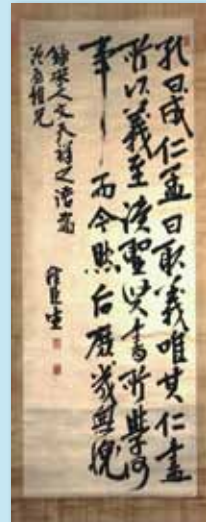 孔曰成仁孟曰取義唯其仁盡
所以義至讀聖賢書所學何
事而今然后庶幾無愧
錄宋人文天祥之語為
兄